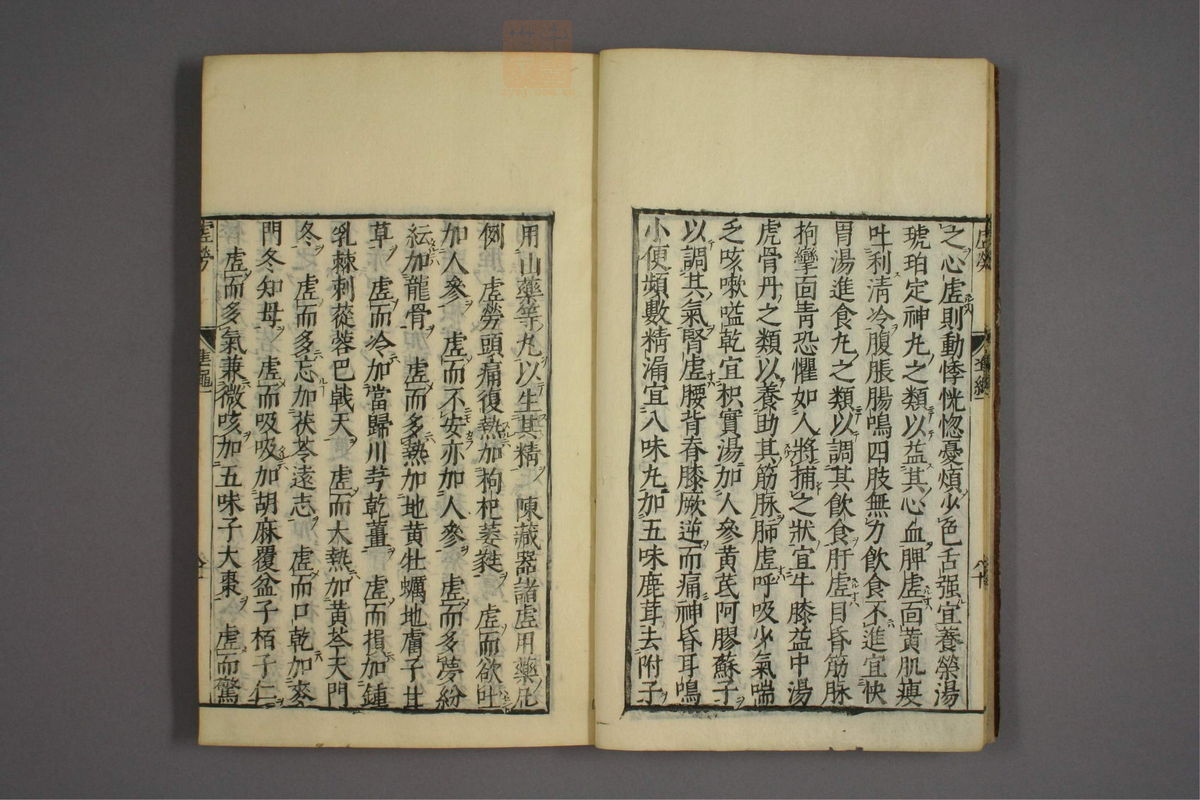 之心虛則動悸恍惚憂煩少色舌强宜養榮湯
琥珀定神丸之類以益其心血脾虛面黃肌瘦
吐利清冷腹脹腸鳴四肢無力飲食不進宜快
胃湯進食丸之類以調其飲食肝虛目昏筋脉
拘攣面靑恐懼如人將捕之狀宜牛膝益中湯
虎骨丹之類以養助其筋脉肺虛呼吸少氣喘
乏咳嗽嗌乾宜枳實湯加人參黃芪阿膠蘇子
以調其氣腎虛腰背脊膝厥逆而痛神昏耳鳴
小便頻數精漏宜八味丸加五味鹿茸去附子
用山藥等丸以生其精 陳藏器諸虛用藥凡
例 虛勞頭痛復熱加枸杞萎蕤 虛而欲吐
加人參 虛而不安亦加人參 虛而多夢紛
紜加龍骨 虛而多熱加地黃牡蠣地膚子甘
草 虛而冷加當歸川芎乾薑 虛而損加鍾
乳棘刺蓯蓉巴戟天 虛而大熱加黃芩天門
冬 虛而多忘加茯苓遠志 虛而口乾加麥
門冬知母 虛而吸吸加胡麻覆盆子栢子仁
虛而多氣兼微咳加五味子大棗 虛而驚
虛勞